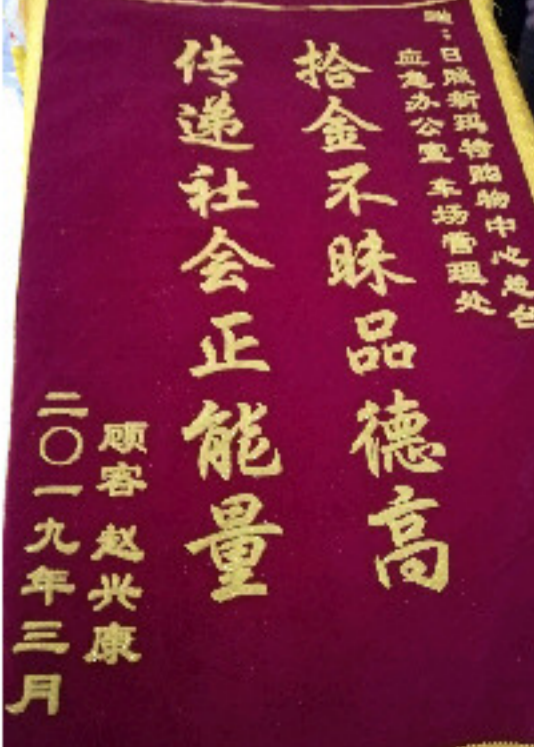 赠：日照新玛特购物中心总台
应急办公室 车场管理处
拾金不昧品德高
传递社会正能量
顾客 赵兴康
二〇一九年三月